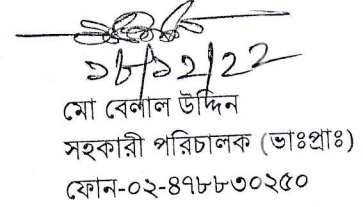 ১৮/১২/২২
মো বেলাল উদ্দিন
সহকারী পরিচালক (ভাঃপ্রাঃ)
ফোন-০২-৪৭৮৮৩০২৫০